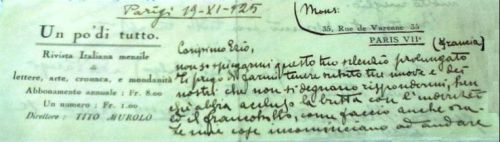 Parigi 19-XI-925
Mons:
35, Rue de Varenne 35
PARIS VIIe
(Francia)
Un po' di tutto.
Rivista Italiana mensile
di
lettere, arte, cronaca, e mondanità
Abbonamento annuale: Fr. 8.00
Un numero: Fr. 1.00
Direttore: TITO MUROLO
Carissimo Ezio,
non so spiegarmi questo tuo silenzio prolungato
Ti prego di darmi tue nuove e dei
nostri che non si degnano rispondermi, ben
che abbia accluso la busta con l'indirizzo
ed il francobollo, come faccio anche ora.
Le mie cose incominciano ad andare